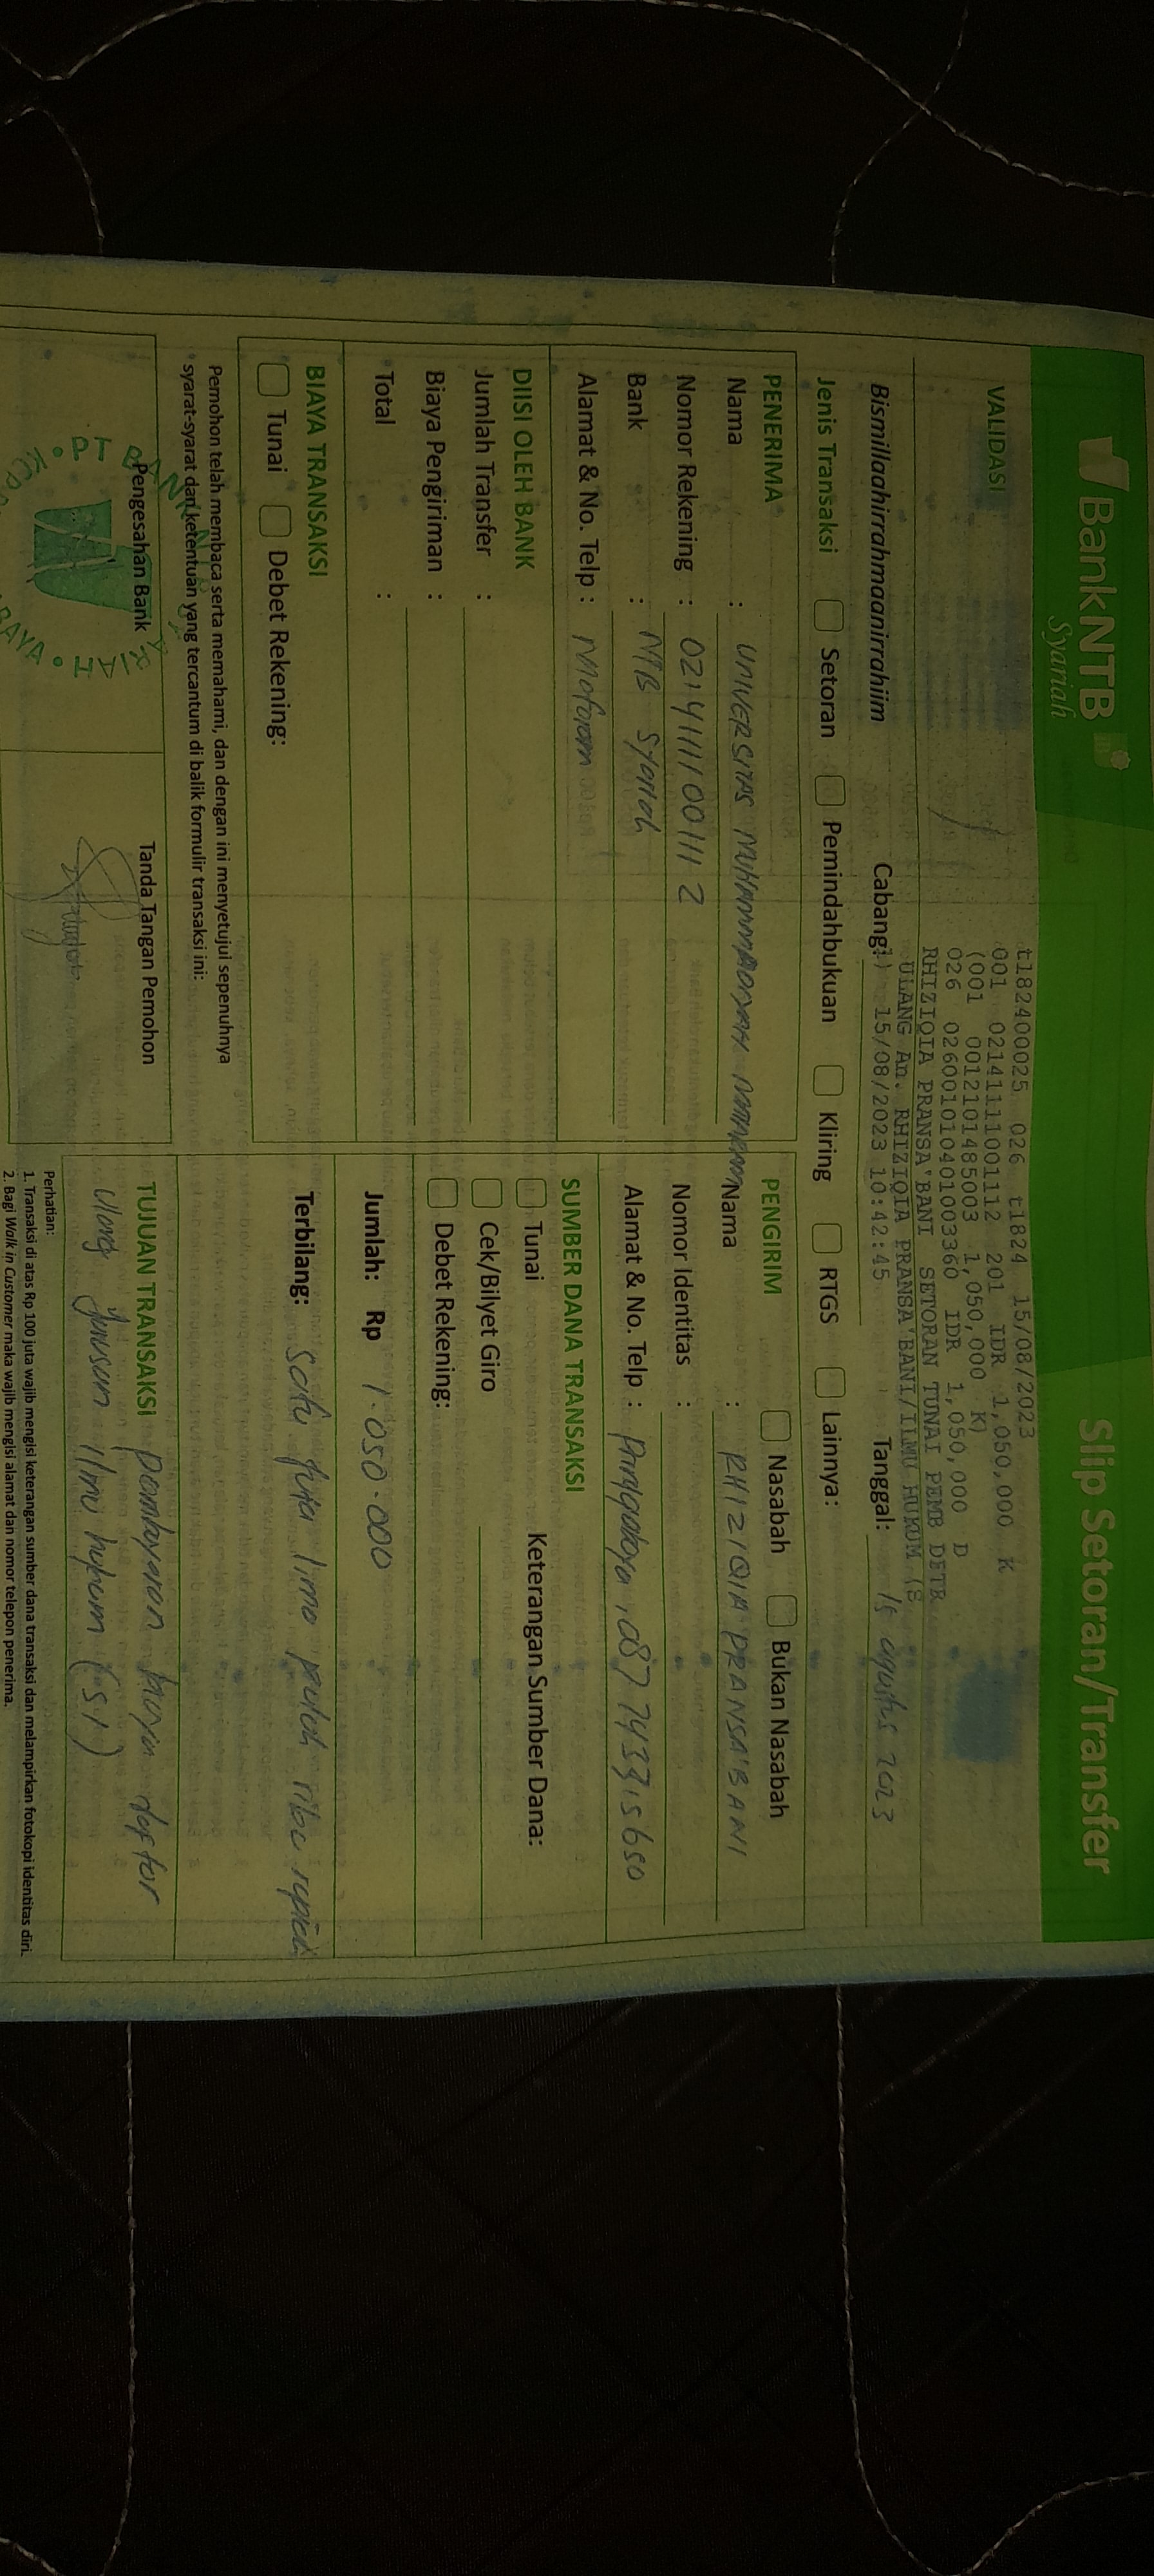 Bank NTB
Syariah
Slip Setoran/Transfer
VALIDASI
t182400025 026 t1824 15/08/2023
001 02141111001112 201 IDR 1,050,000 K
(001 0012101485003 1,050,000 K)
026 026001010401003360 IDR 1,050,000 D
RHIZIQIA PRANSA'BANI SETORAN TUNAI PEMB DFTR
ULANG An. RHIZIQIA PRANSA'BANI/ILMU HUKUM (S
1) 15/08/2023 10:42:45
Bismillaahirrahmaanirrahiim
Cabang:
Tanggal: 15 agustus 2023
Jenis Transaksi Setoran Pemindahbukuan Kliring RTGS Lainnya:
PENERIMA
Nama : UNIVERSITAS MUHAMMADIYAH MATARAM
Nomor Rekening : 0214111100111 2
Bank : NTB Syariah
Alamat & No. Telp : Mataram
PENGIRIM Nasabah Bukan Nasabah
Nama : RHIZIQIA PRANSA'BANI
Nomor Identitas :
Alamat & No. Telp :
DIISI OLEH BANK
Jumlah Transfer :
Biaya Pengiriman :
Total :
SUMBER DANA TRANSAKSI
Tunai Keterangan Sumber Dana:
Cek/Bilyet Giro
Debet Rekening:
BIAYA TRANSAKSI
Tunai Debet Rekening:
Jumlah: Rp 1.050.000
Terbilang: Satu juta lima puluh ribu rupiah
Pemohon telah membaca serta memahami, dan dengan ini menyetujui sepenuhnya
syarat-syarat dan ketentuan yang tercantum di balik formulir transaksi ini:
Pengesahan Bank
Tanda Tangan Pemohon
TUJUAN TRANSAKSI pembayaran biaya daftar
ulang jurusan ilmu hukum (S1)
Perhatian:
1. Transaksi di atas Rp 100 juta wajib mengisi keterangan sumber dana transaksi dan melampirkan fotokopi identitas diri.
2. Bagi Walk in Customer maka wajib mengisi alamat dan nomor telepon penerima.